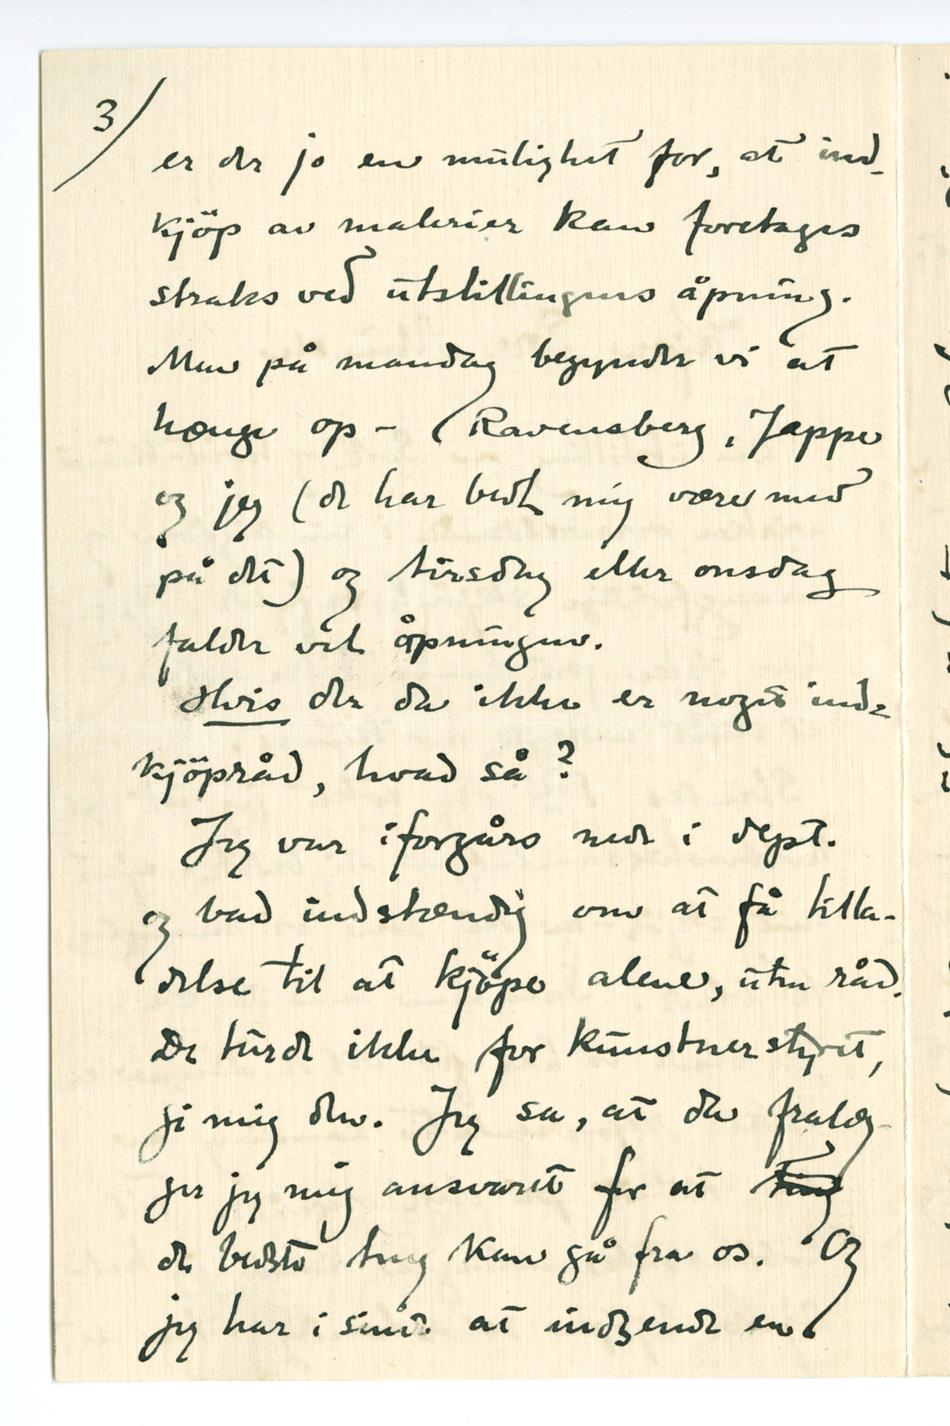 3/
er der jo en mulighet for, at ind-
kjöp av malerier kan foretages
straks ved utstillingens åpning.
Men på mandag begynder vi at
hænge op – (Ravensberg, Jappe
og jeg (de har bedt mig være med
på det) og tirsdag eller onsdag
falder vel åpningen.
Hvis der da ikke er noget ind-
kjöpsråd, hvad så?
Jeg var iforgårs nede i dept.
og bad indstændig om at få tilla-
delse til at kjöpe alene, uten råd.
De turde ikke for kunstnerstyret,
gi mig den. Jeg sa, at da fralæg-
ger jeg mig ansvaret for at ting
de bedste ting kan gå fra os. Og
jeg har i sinde at indsende en